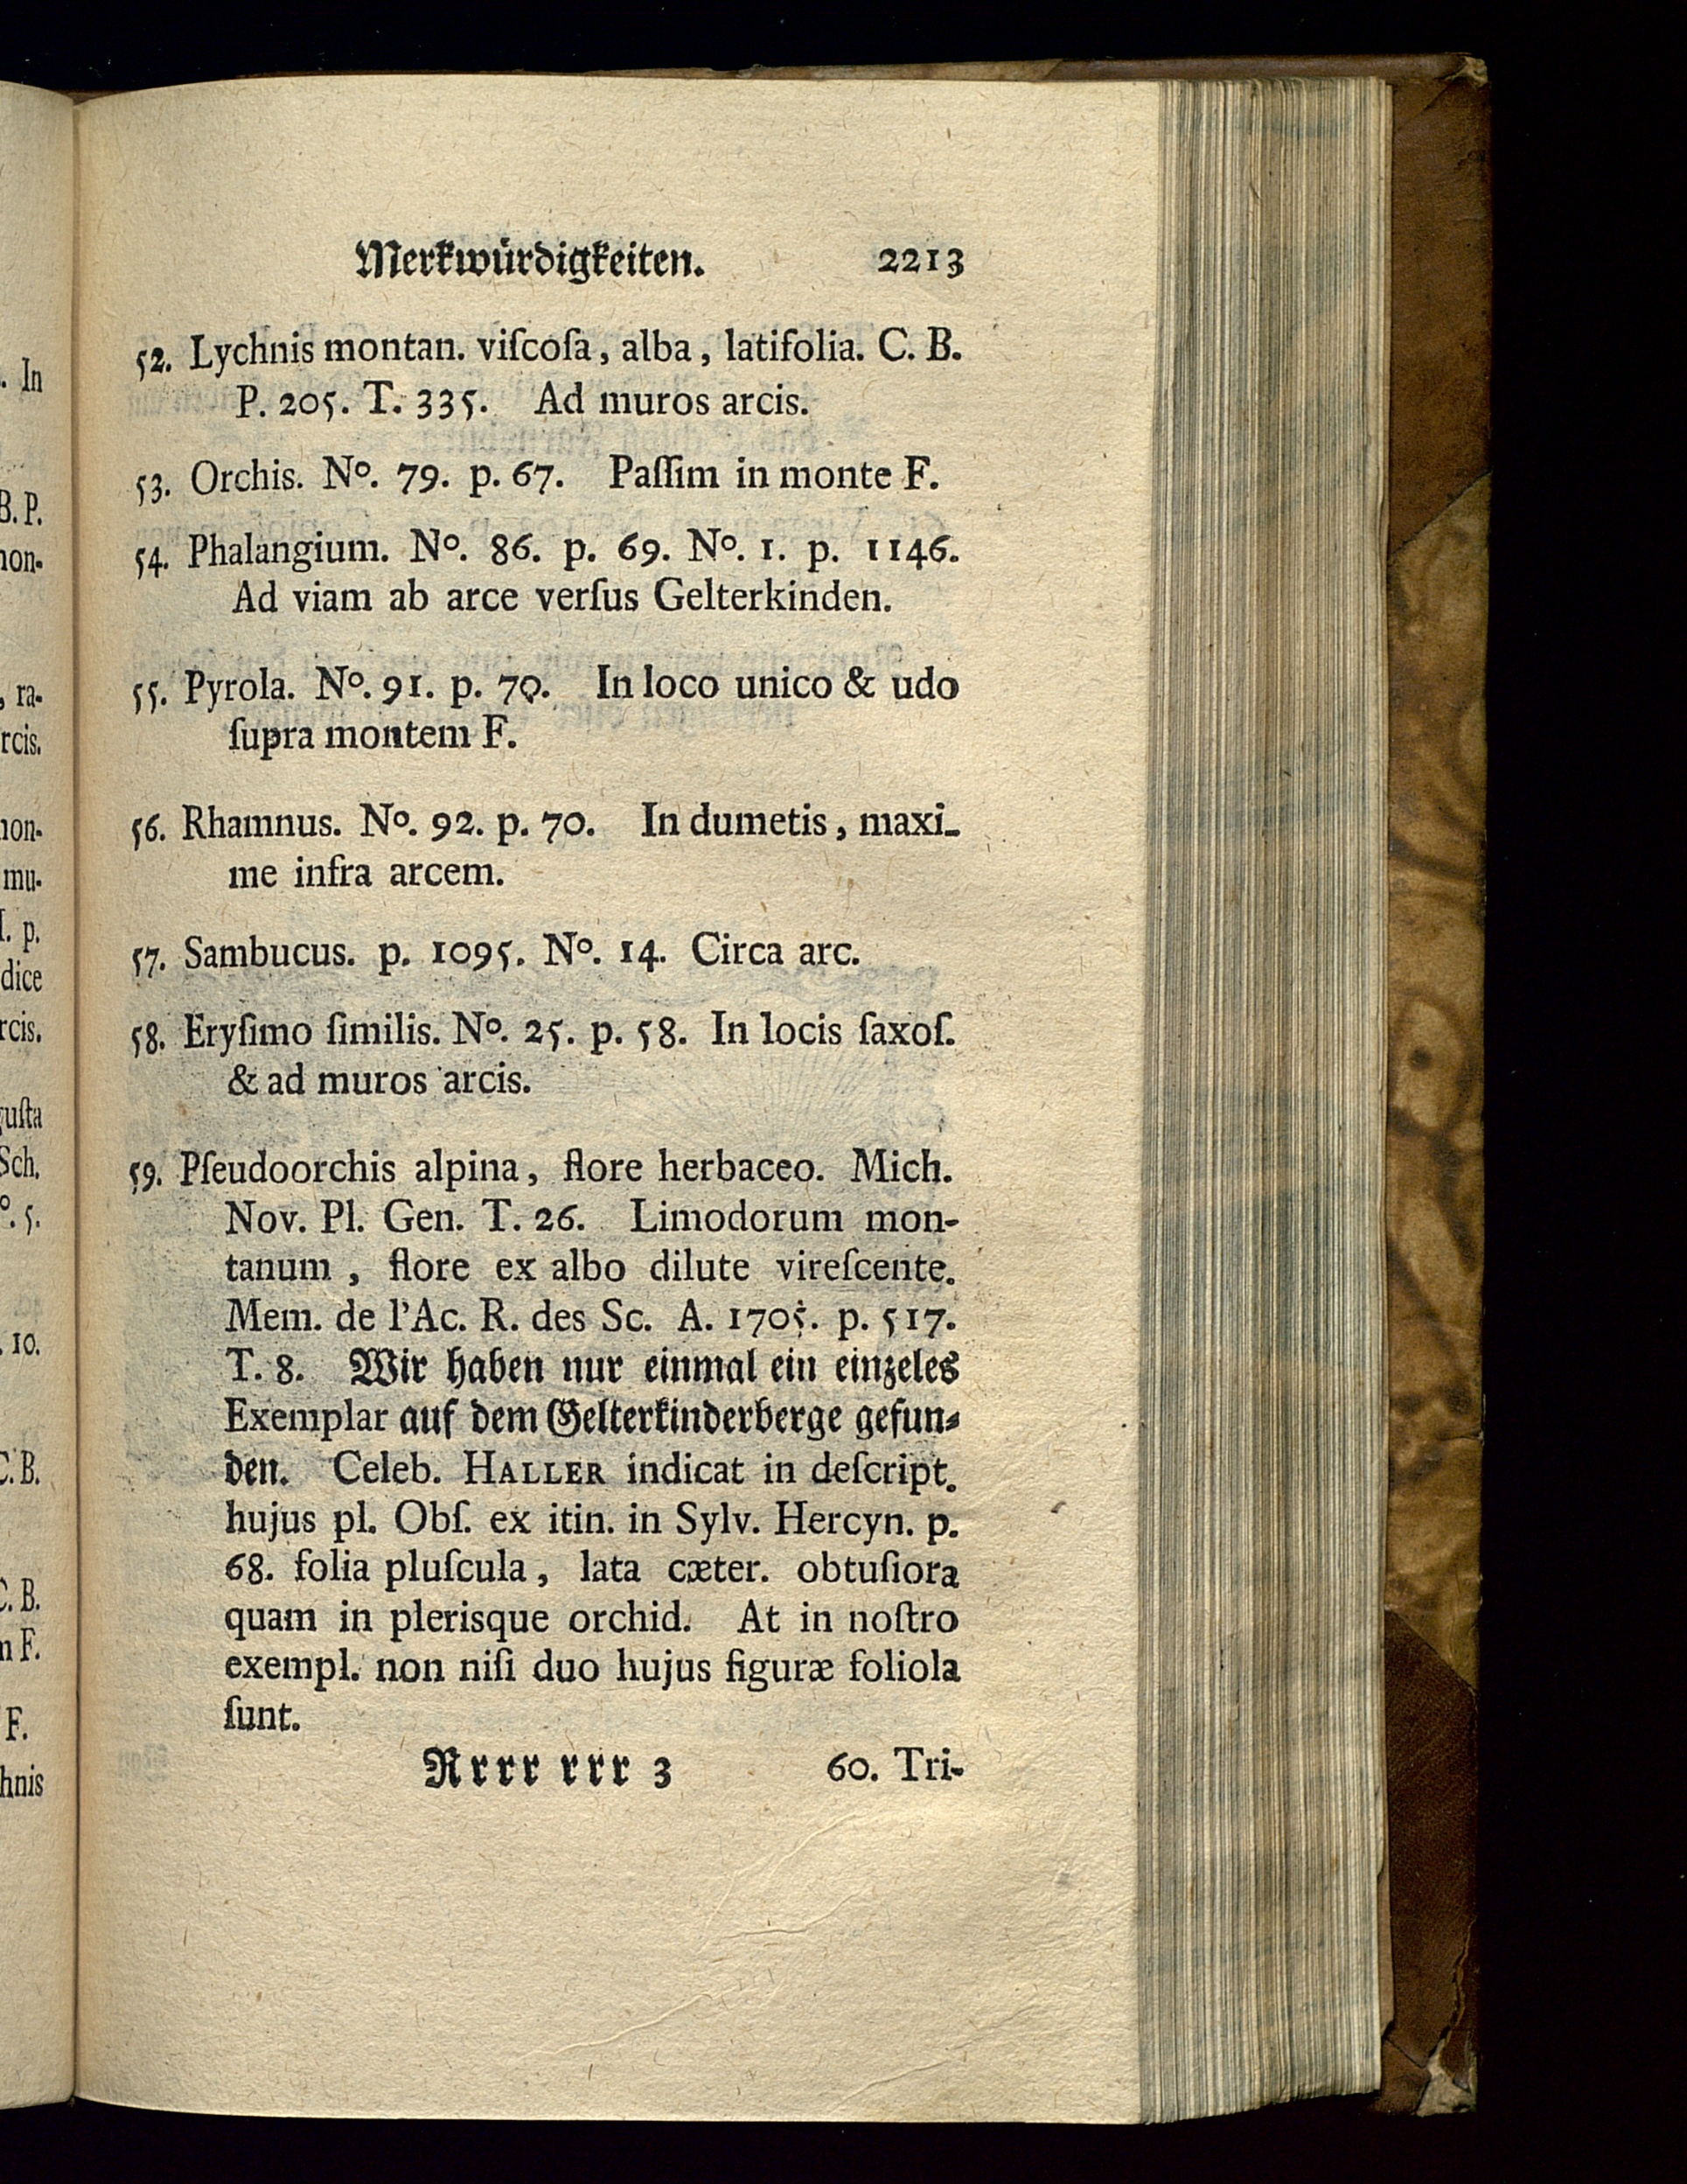 Merkwürdigkeiten. 2213
52. Lychnis montan. viſcoſa, alba, latifolia. C. B.
P. 205. T. 335. Ad muros arcis.
53. Orchis. Nº. 79. p. 67. Paſſim in monte F.
54. Phalangium. Nº. 86. p. 69. Nº. 1. p. 1146.
Ad viam ab arce verſus Gelterkinden.
55. Pyrola. Nº. 91. p. 70. In loco unico & udo
ſupra montem F.
56. Rhamnus. Nº. 92. p. 70. In dumetis, maxi-
me infra arcem.
57. Sambucus. p. 1095. Nº. 14. Circa arc.
58. Eryſimo ſimilis. Nº. 25. p. 58. In locis ſaxoſ.
& ad muros arcis.
59. Pſeudoorchis alpina, flore herbaceo. Mich.
Nov. Pl. Gen. T. 26. Limodorum mon-
tanum, flore ex albo dilute vireſcente.
Mem. de l'Ac. R. des Sc. A. 1705. p. 517.
T. 8. Wir haben nur einmal ein einzeles
Exemplar auf dem Gelterkinderberge gefun-
den. Celeb. HALLER indicat in deſcript.
hujus pl. Obſ. ex itin. in Sylv. Hercyn. p.
68. folia pluſcula, lata cæter. obtuſiora
quam in plerisque orchid. At in noſtro
exempl. non niſi duo hujus figuræ foliola
ſunt.
Rrrr rrr 3 60. Tri-
. In
B. P.
non-
, ra-
rcis.
non-
mu-
p.
dice
rcis.
guſta
Sch.
º. 5.
. 10.
C. B.
C. B.
F.
F.
hnis